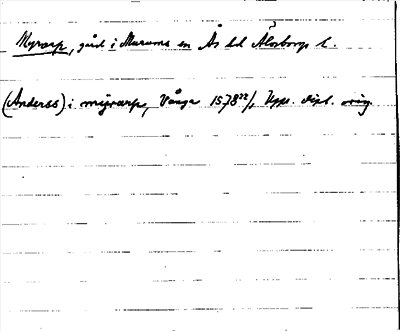 Myrarp, gård i Murums sn Ås hd Älvsborgs l.
(Anderss) i myrarp, Vånga 1578 22/1 Upps. dipl. orig.